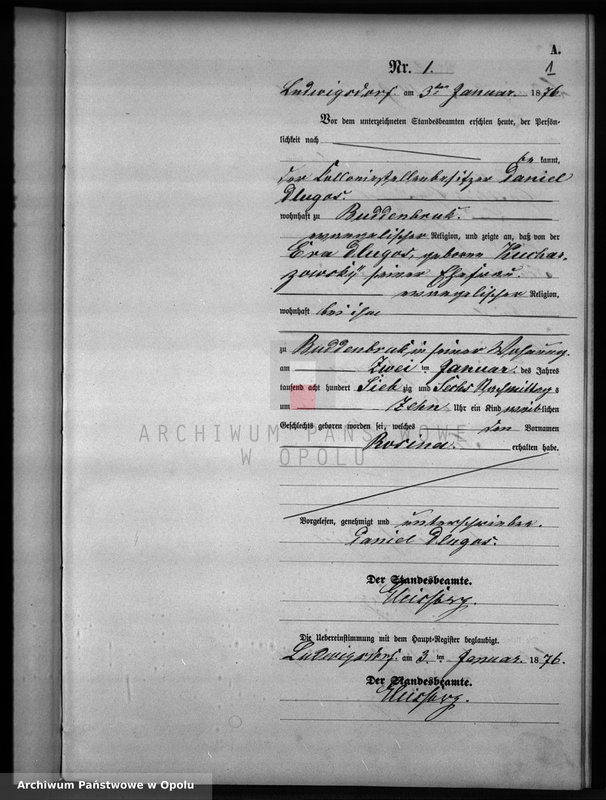 A.
Nr. 1.
1
Ludwigsdorf am 3ten Januar 1876
Vor dem unterzeichneten Standesbeamten erschien heute, der Persön-
lichkeit nach
be kannt,
der Colloniestellenbesitzer Daniel
Dlugos.
wohnhaft zu Buddenbruk.
evangelischer Religion, und zeigte an, daß von der
Eva Dlugos, geborene Kuchar,
zowsky seiner Ehefrau.
evangelischer Religion,
wohnhaft bei ihm
zu Buddenbruk in seiner Wohnung.
am Zwei ten Januar des Jahres
tausend acht hundert Sieb zig und Sechs Nachmittag s
um Zehn Uhr ein Kind weiblichen
Geschlechts geboren worden sei, welches den Vornamen
Rosina. erhalten habe.
ARCHIWUM PAŃSTWOWE
W OPOLU
Vorgelesen, genehmigt und unterschrieben.
Daniel Dlugos.
Der Standesbeamte.
Die Uebereinstimmung mit dem Haupt-Register beglaubigt.
Ludwigsdorf am 3. ten Januar. 1876.
Der Standesbeamte.
Archiwum Państwowe w Opolu